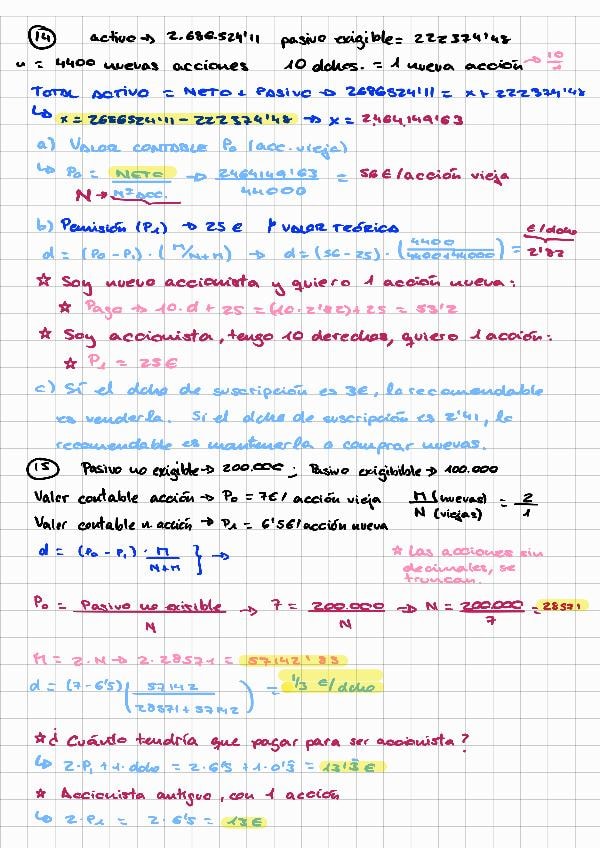 14 activo → 2.686.524'11 pasivo exigible = 222374'48
n = 4400 nuevas acciones 10 dchos. = 1 nueva acción → 10/1
TOTAL ACTIVO = NETO + PASIVO → 2686524'11 = x + 222374'48
↳ x = 2686524'11 - 222374'48 → x = 2.464.149'63
a) VALOR CONTABLE P₀ (acc. vieja)
↳ P₀ = NETO / Nº acc. → 2464149'63 / 44000 = 56 €/acción vieja
N →
b) Pemisión (P₁) → 25 € ↱ VALOR TEÓRICO €/dcho
d = (P₀ - P₁) · (M/N+M) → d = (56 - 25) · (4400 / 4400+44000) = 2'82
☆ Soy nuevo accionista y quiero 1 acción nueva:
☆ Pago → 10·d + 25 = (10·2'82) + 25 = 53'2
☆ Soy accionista, tengo 10 derechos, quiero 1 acción:
☆ P₁ = 25€
c) Si el dcho de suscripción es 3€, lo recomendable
es venderla. Si el dcho de suscripción es 2'41, lo
recomendable es mantenerla o comprar nuevas.
15 Pasivo no exigible → 200.000€ ; Pasivo exigibible → 100.000
Valor contable acción → P₀ = 7€/acción vieja M (nuevas) / N (viejas) = 2/1
Valor contable n. acción → P₁ = 6'5€/acción nueva
d = (P₀ - P₁) · M / N+M } →
☆ Las acciones sin
decimales, se
truncan.
P₀ = Pasivo no exigible / N → 7 = 200.000 / N → N = 200.000 / 7 = 28571
M = 2·N → 2·28571 = 57142'85
d = (7 - 6'5) (57142 / 28571 + 57142) = 1/3 €/dcho
☆ ¿Cuánto tendría que pagar para ser accionista?
↳ 2·P₁ + 1·dcho = 2·6'5 + 1·0'3̂ = 13'3̂ €
☆ Accionista antiguo, con 1 acción
↳ 2·P₁ = 2·6'5 = 13€